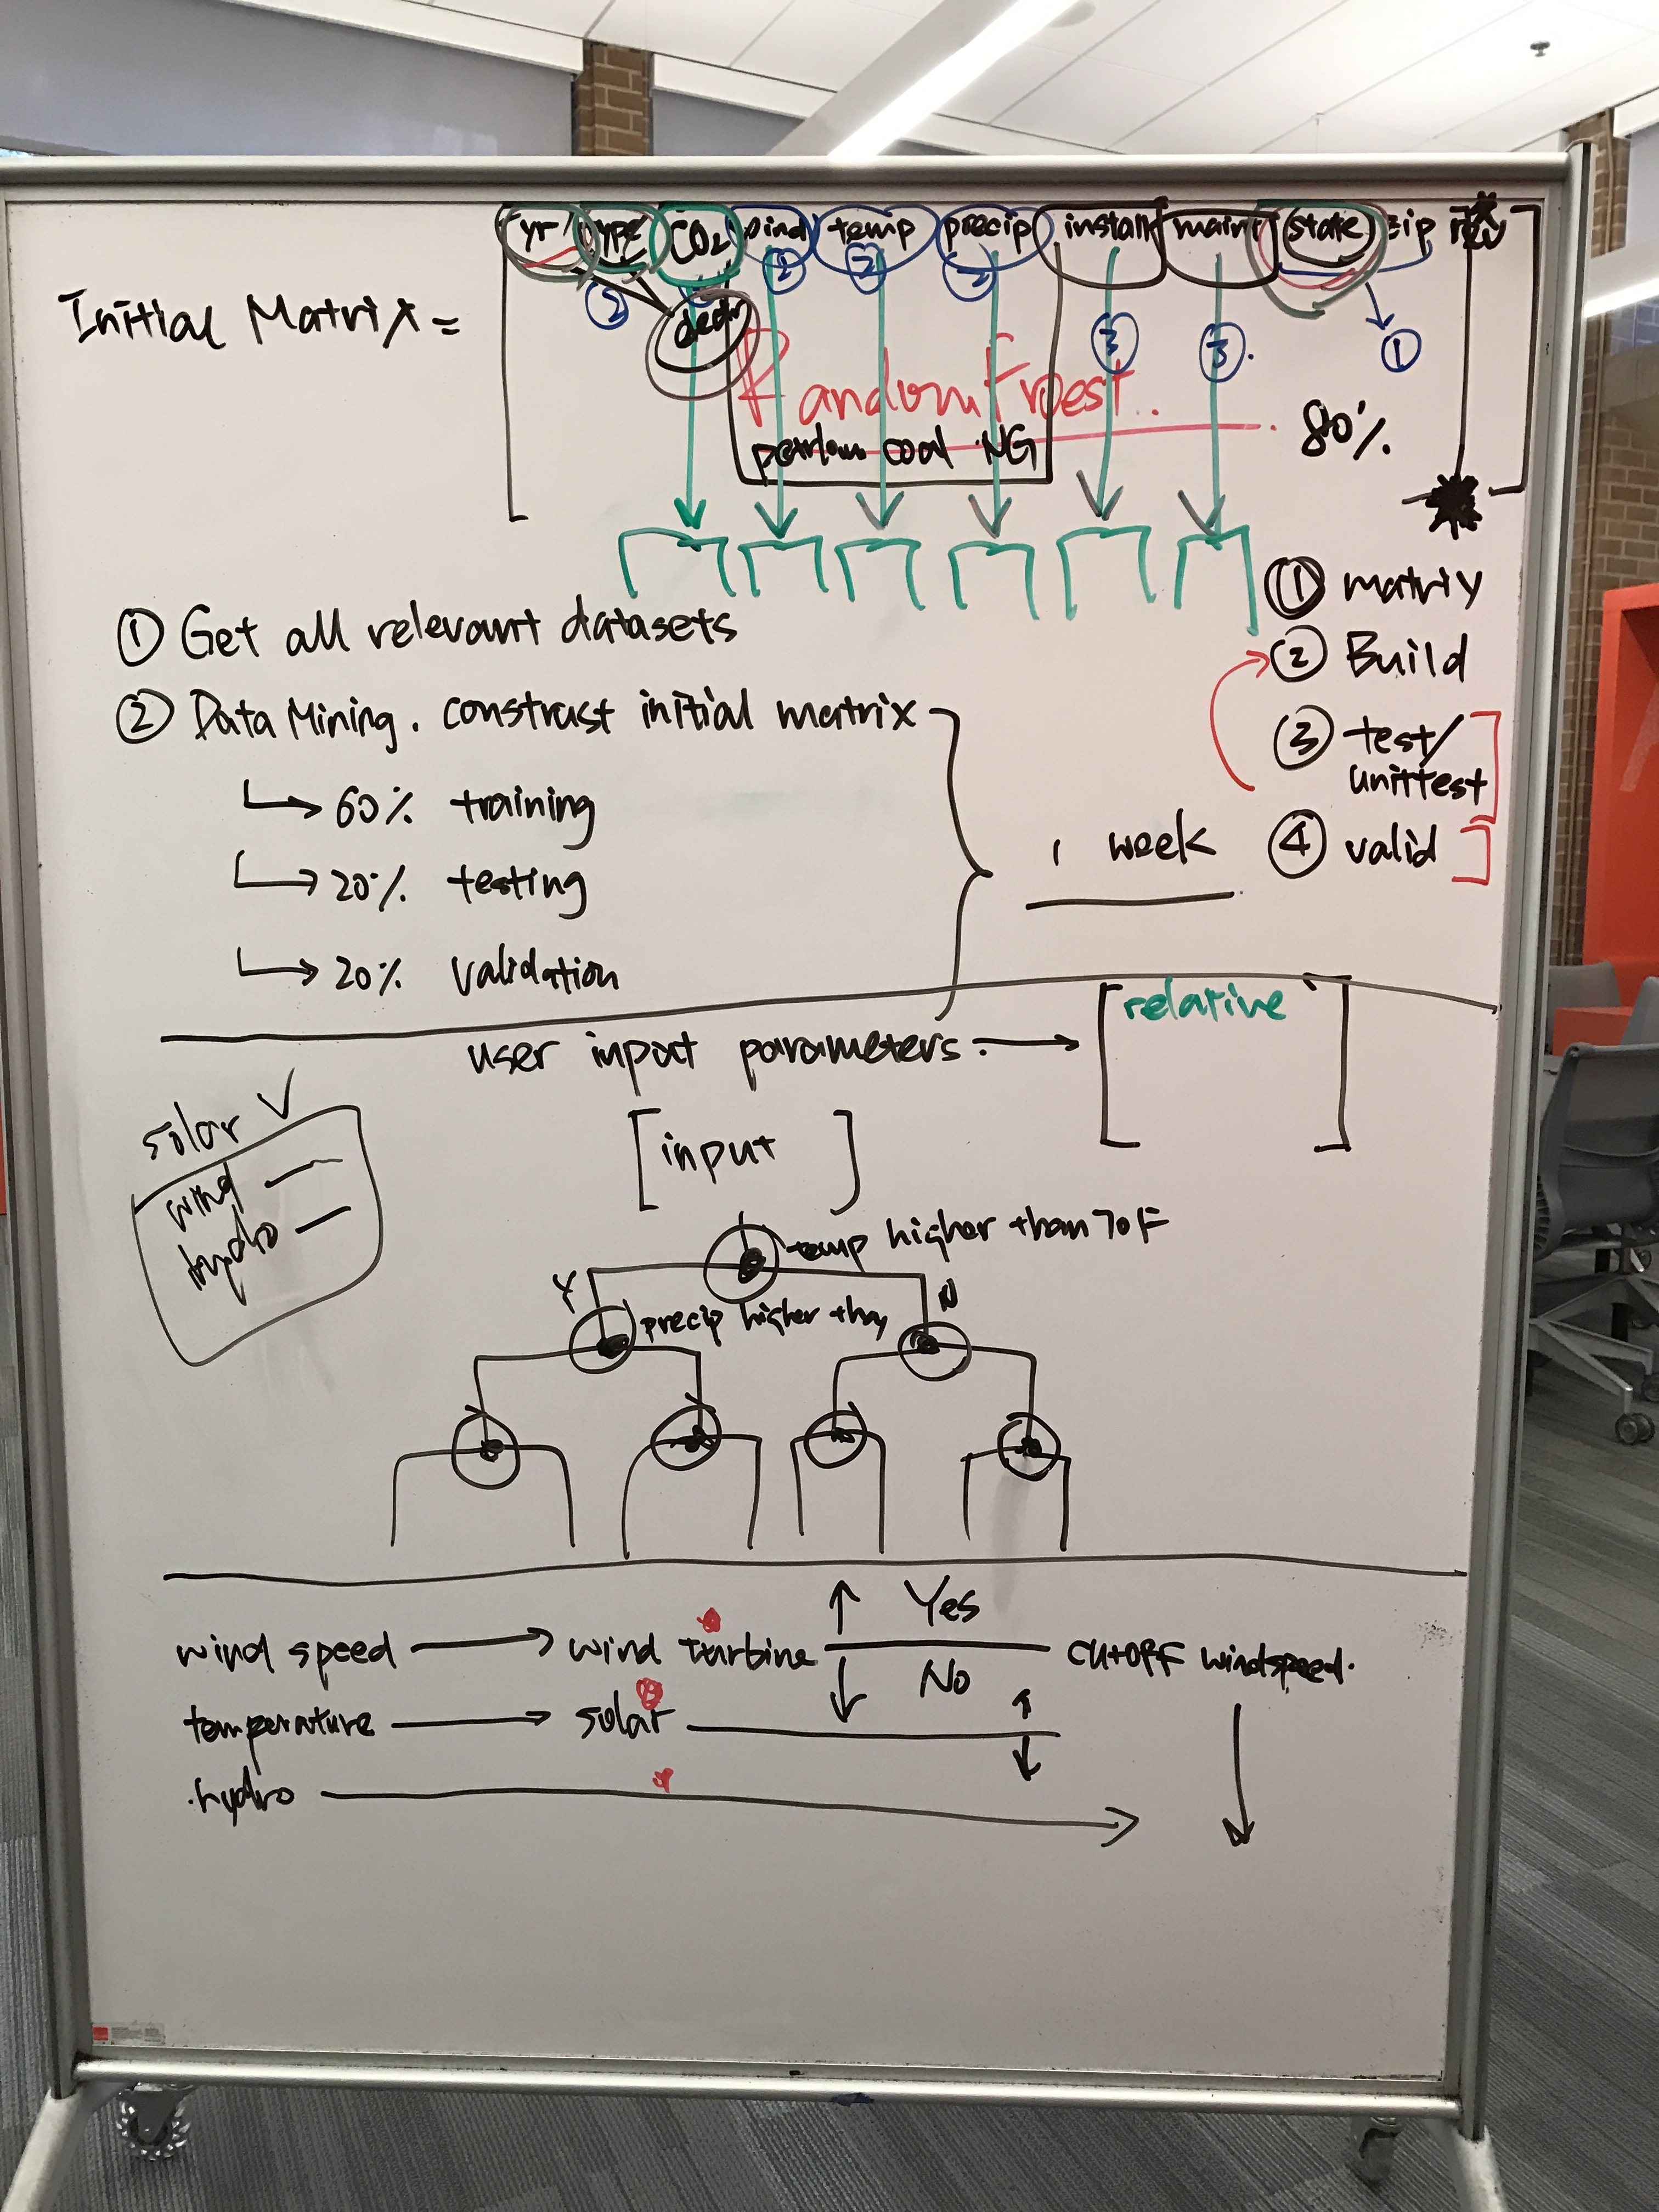 yr type CO2 wind temp precip install maint state zip rev
Initial Matrix =
2 2 2 2
3 3 1
Random Froest.
80%
petrloum coal NG
① Get all relevant datasets
② Data Mining. construst initial matrix
60% training
20% testing
20% validation
1 week
① matrix
② Build
③ test/
unittest
④ valid
user input parameters:
[relative]
[input]
solar ✓
wind —
hydro —
temp higher than 70F
Y N
precip higher than
Yes
wind speed → wind turbine cutoff windspeed.
No
temperature → solar
hydro →